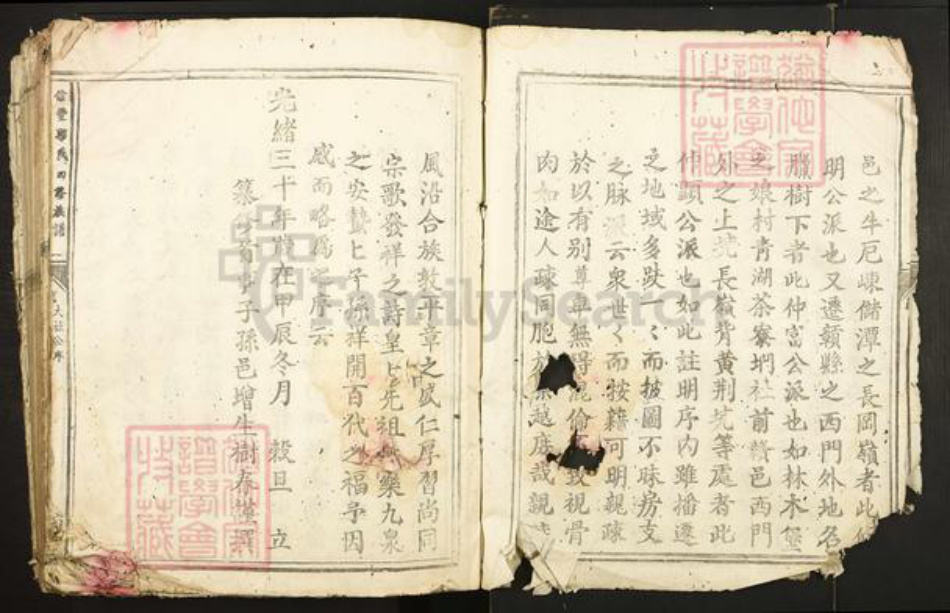 邑之牛厄崠儲潭之長岡嶺者此
明公派也又遷贛縣之西門外地名
樹下者此仲富公派也如林木
之娘村青湖茶寮坰社前贛邑西門
外之上坑長嶺背黃荆坑等處者此
仲顯公派也如此註明序内雖播遷
之地域多跂一〻而披圖不昧房支
之脉派云衆世〻而按籍可明親疎
於以有别尊卑無得混倫不致視骨
肉如途人疎同胞於越庶哉親
風沿合族敦平章之盛仁厚習尚同
宗歌發祥之詩皇〻先祖樂九泉
之安蟄〻子孫祥開百代之福予因
感而略為之序云
光緒三十年歲在甲辰冬月 穀旦 立
纂修首事子孫邑增生樹春謹撰
信豐 氏四修族譜
大社公序
FamilySearch
譜學會
特藏
譜學會
特藏